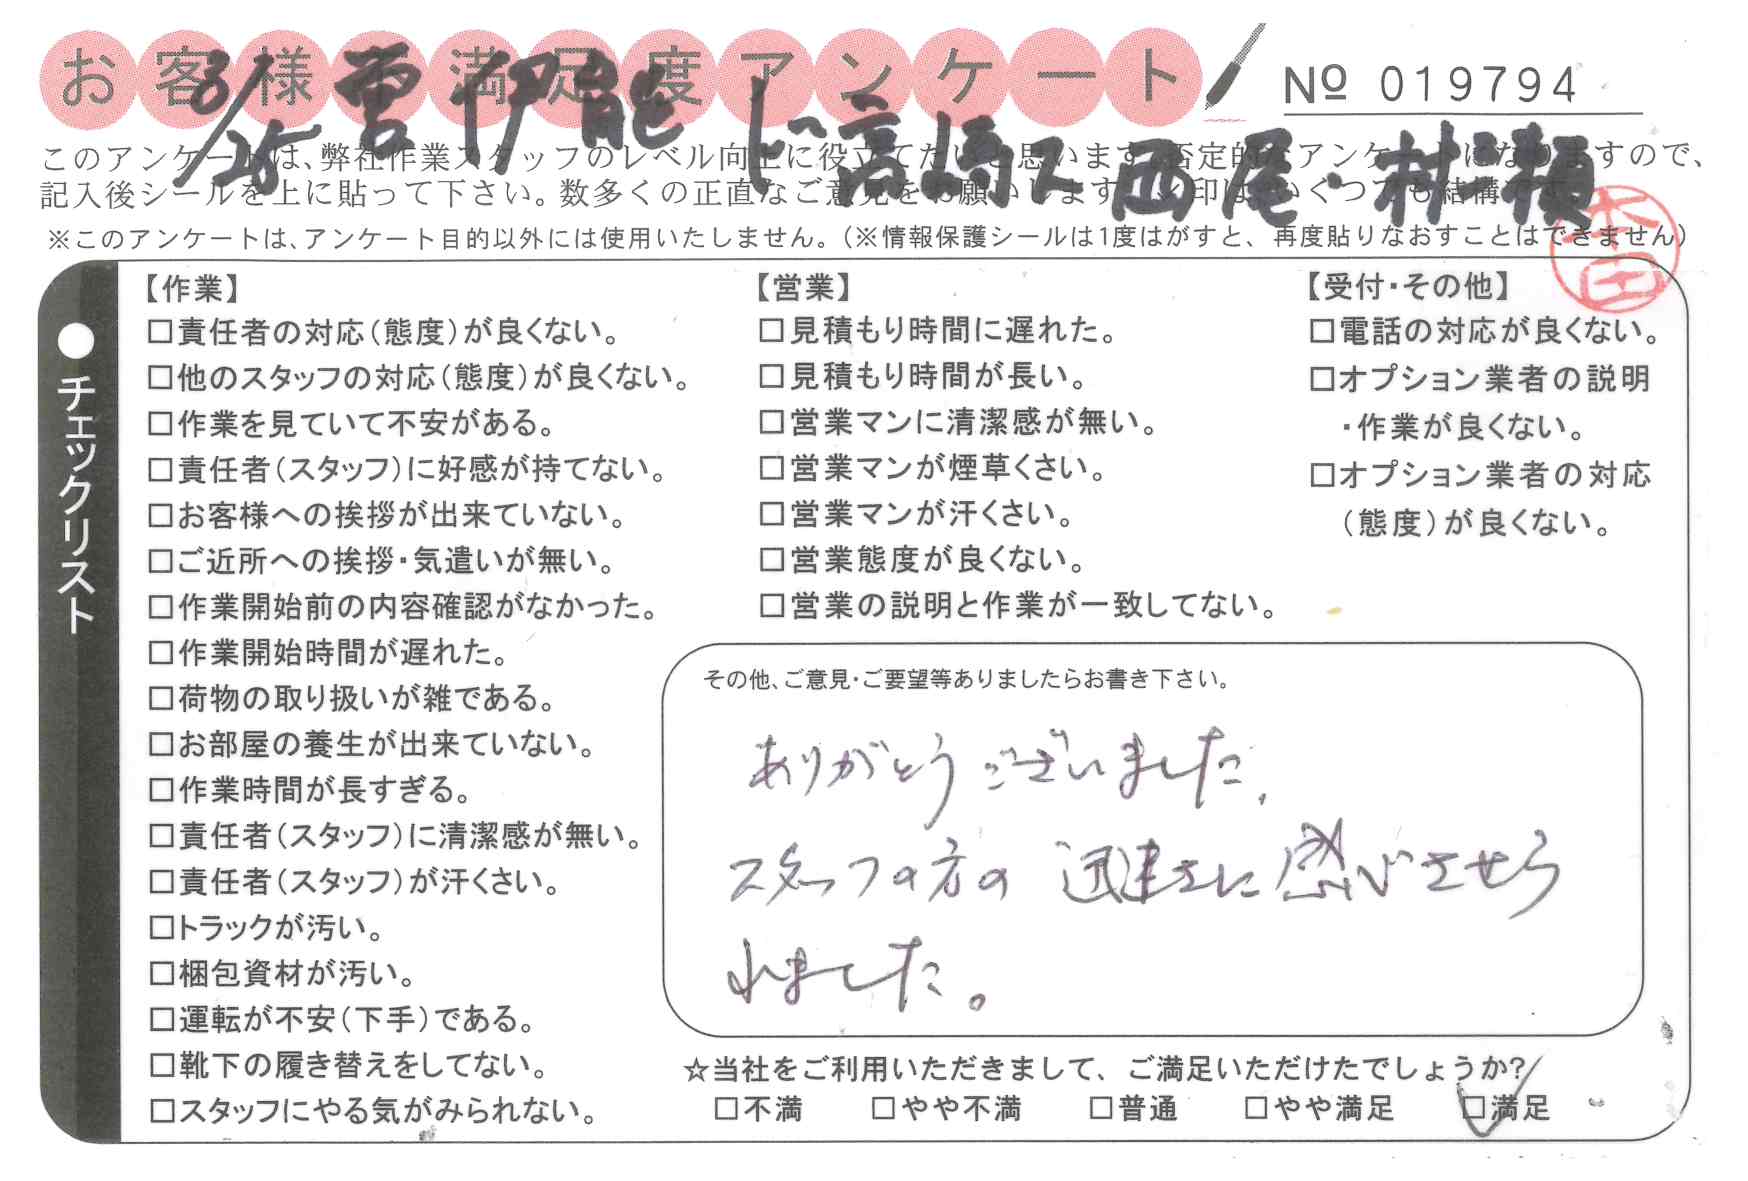 お客様満足度アンケート
№ 019794
8/25 営 伊能 じ 高崎 西尾・村瀬
このアンケートは、弊社作業スタッフのレベル向上に役立てたいと思います。否定的なアンケートになりますので、
記入後シールを上に貼って下さい。数多くの正直なご意見をお願いします。✓印は、いくつでも結構です。
※このアンケートは、アンケート目的以外には使用いたしません。(※情報保護シールは1度はがすと、再度貼りなおすことはできません)
本田
●チェックリスト
【作業】
□責任者の対応(態度)が良くない。
□他のスタッフの対応(態度)が良くない。
□作業を見ていて不安がある。
□責任者(スタッフ)に好感が持てない。
□お客様への挨拶が出来ていない。
□ご近所への挨拶・気遣いが無い。
□作業開始前の内容確認がなかった。
□作業開始時間が遅れた。
□荷物の取り扱いが雑である。
□お部屋の養生が出来ていない。
□作業時間が長すぎる。
□責任者(スタッフ)に清潔感が無い。
□責任者(スタッフ)が汗くさい。
□トラックが汚い。
□梱包資材が汚い。
□運転が不安(下手)である。
□靴下の履き替えをしてない。
□スタッフにやる気がみられない。
【営業】
□見積もり時間に遅れた。
□見積もり時間が長い。
□営業マンに清潔感が無い。
□営業マンが煙草くさい。
□営業マンが汗くさい。
□営業態度が良くない。
□営業の説明と作業が一致してない。
【受付・その他】
□電話の対応が良くない。
□オプション業者の説明
・作業が良くない。
□オプション業者の対応
(態度)が良くない。
その他、ご意見・ご要望等ありましたらお書き下さい。
ありがとうございました。
スタッフの方の迅速さに感心させら
れました。
☆当社をご利用いただきまして、ご満足いただけたでしょうか?
□不満 □やや不満 □普通 □やや満足 □満足